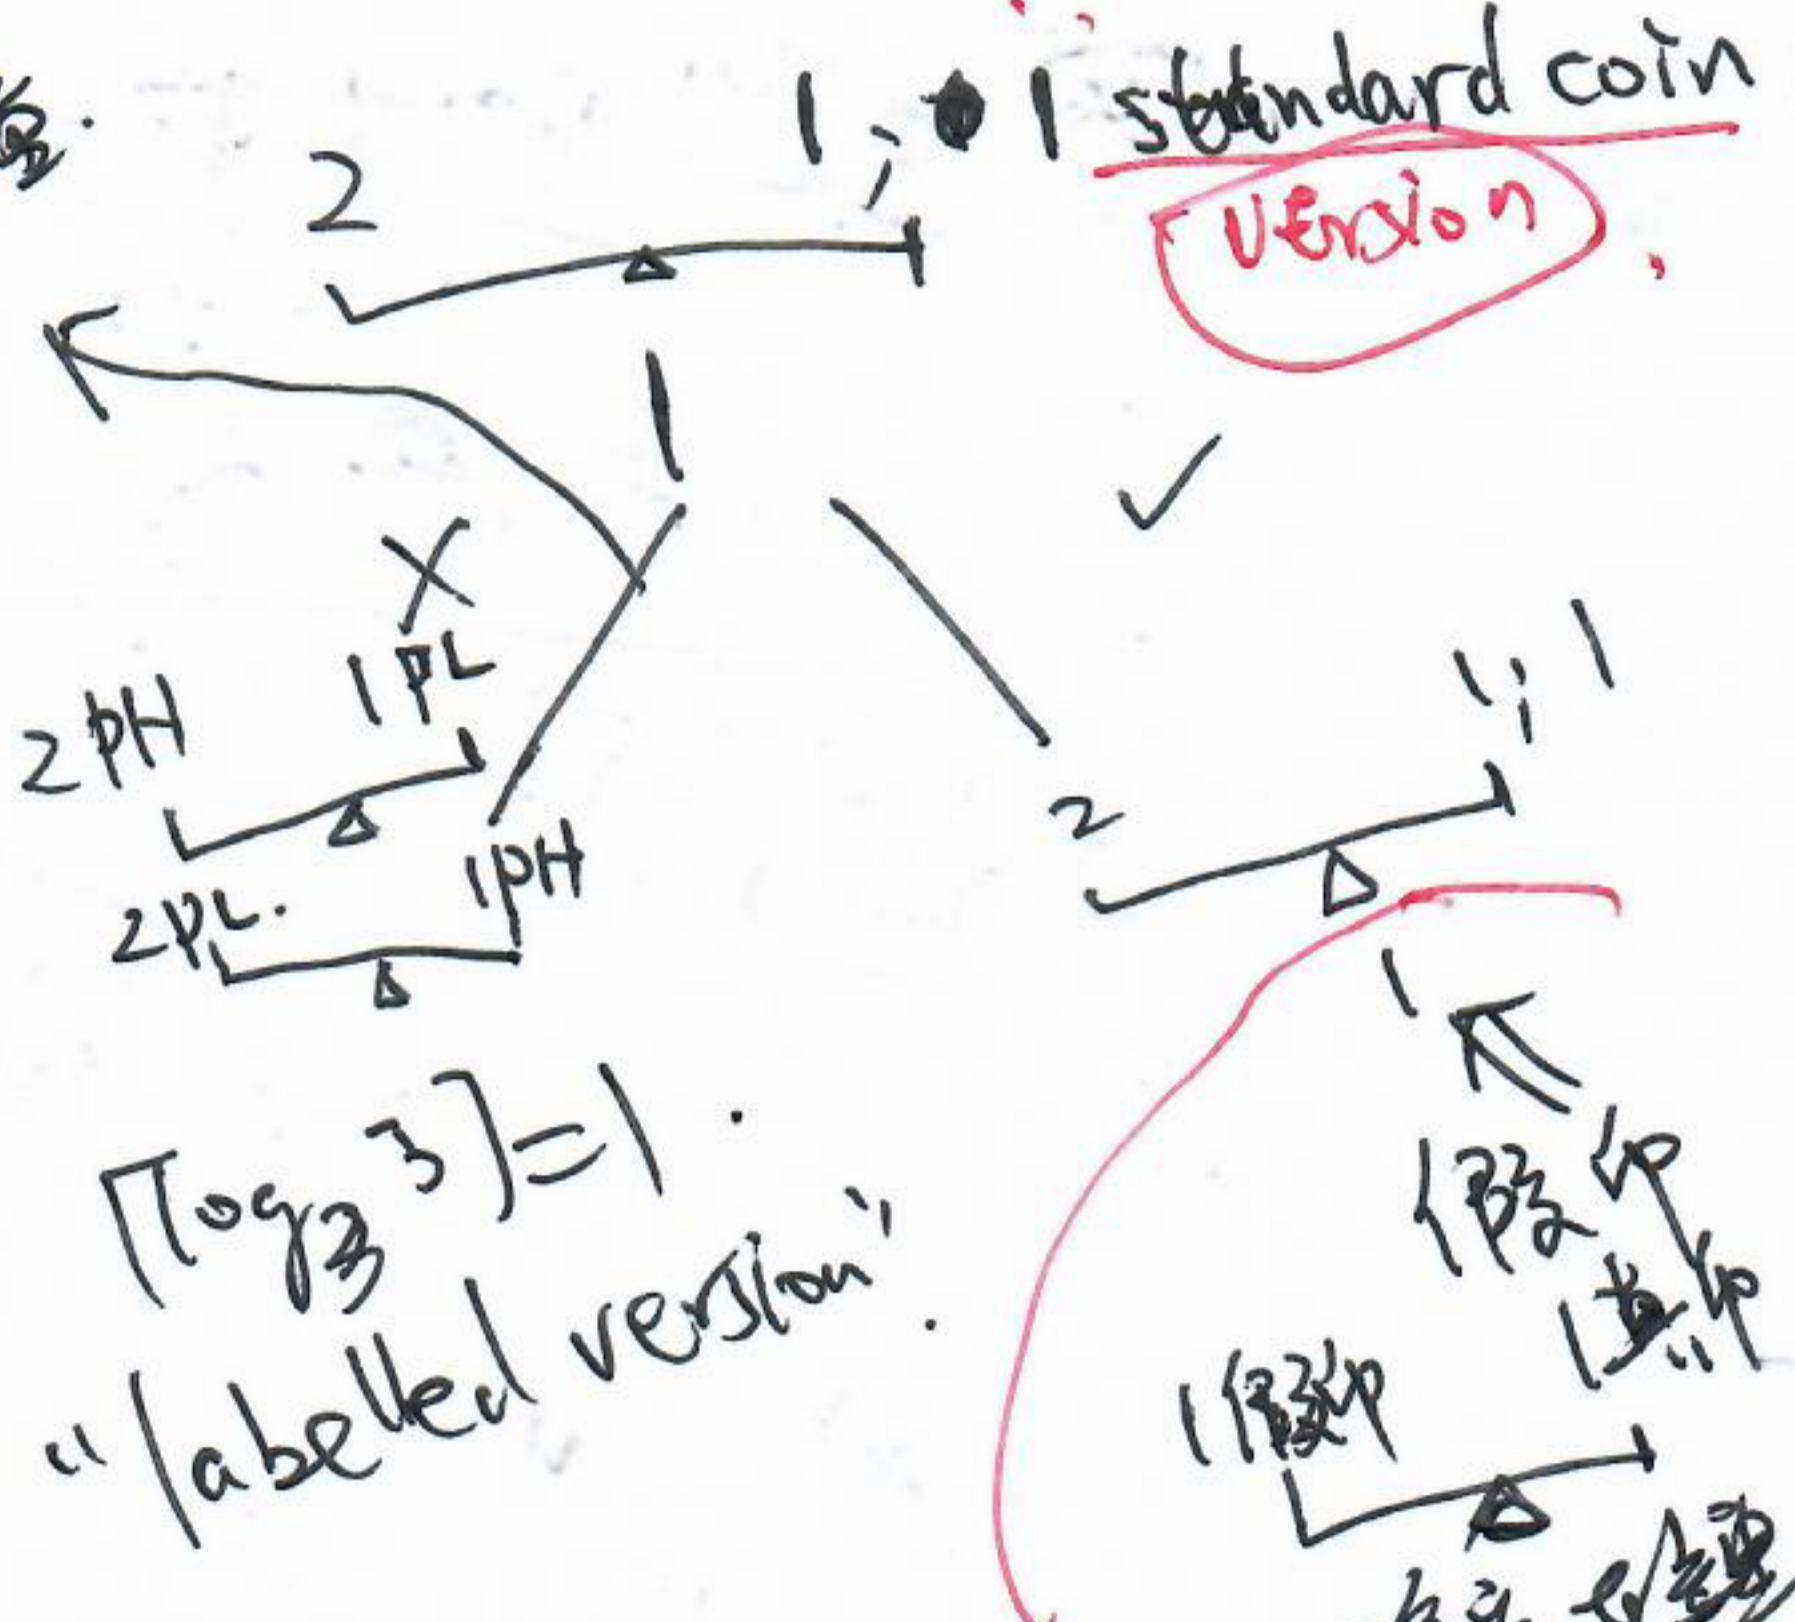 2 1; 1 standard coin
version
1
✓
X
2PH 1PL
2PL. 1PH
2 1; 1
1
⌈log₃3⌉=1.
"labelled version".
假印
1真印
1假印